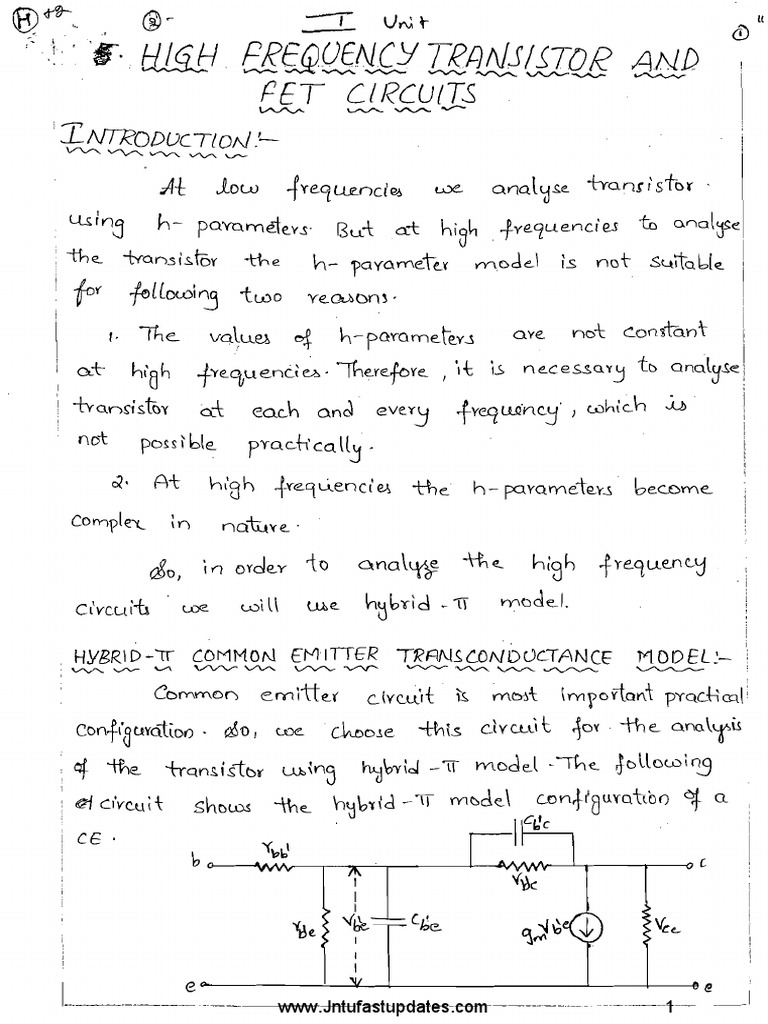 H
I Unit
1
HIGH FREQUENCY TRANSISTOR AND
FET CIRCUITS
INTRODUCTION:-
At low frequencies we analyse transistor.
using h-parameters. But at high frequencies to analyse
the transistor the h-parameter model is not suitable
for following two reasons.
1. The values of h-parameters are not constant
at high frequencies. Therefore, it is necessary to analyse
transistor at each and every frequency, which is
not possible practically.
2. At high frequencies the h-parameters become
complex in nature.
So, in order to analyze the high frequency
circuits we will use hybrid-π model.
HYBRID-π COMMON EMITTER TRANSCONDUCTANCE MODEL:-
Common emitter circuit is most important practical
configuration. So, we choose this circuit for the analysis
of the transistor using hybrid-π model. The following
circuit shows the hybrid-π model configuration of a
CE.
Cb'c
b rbb' rb'c c
rb'e Vb'e Cb'e gmVb'e rce
e e
www.Jntufastupdates.com 1